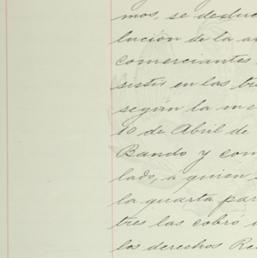 mos, se deduc
lución de la a
comerciantes
sistir en las tr
según la me
10 de Abril de
Bando y com
lado, á quien
la quarta par
tres las cobró
los derechos Re